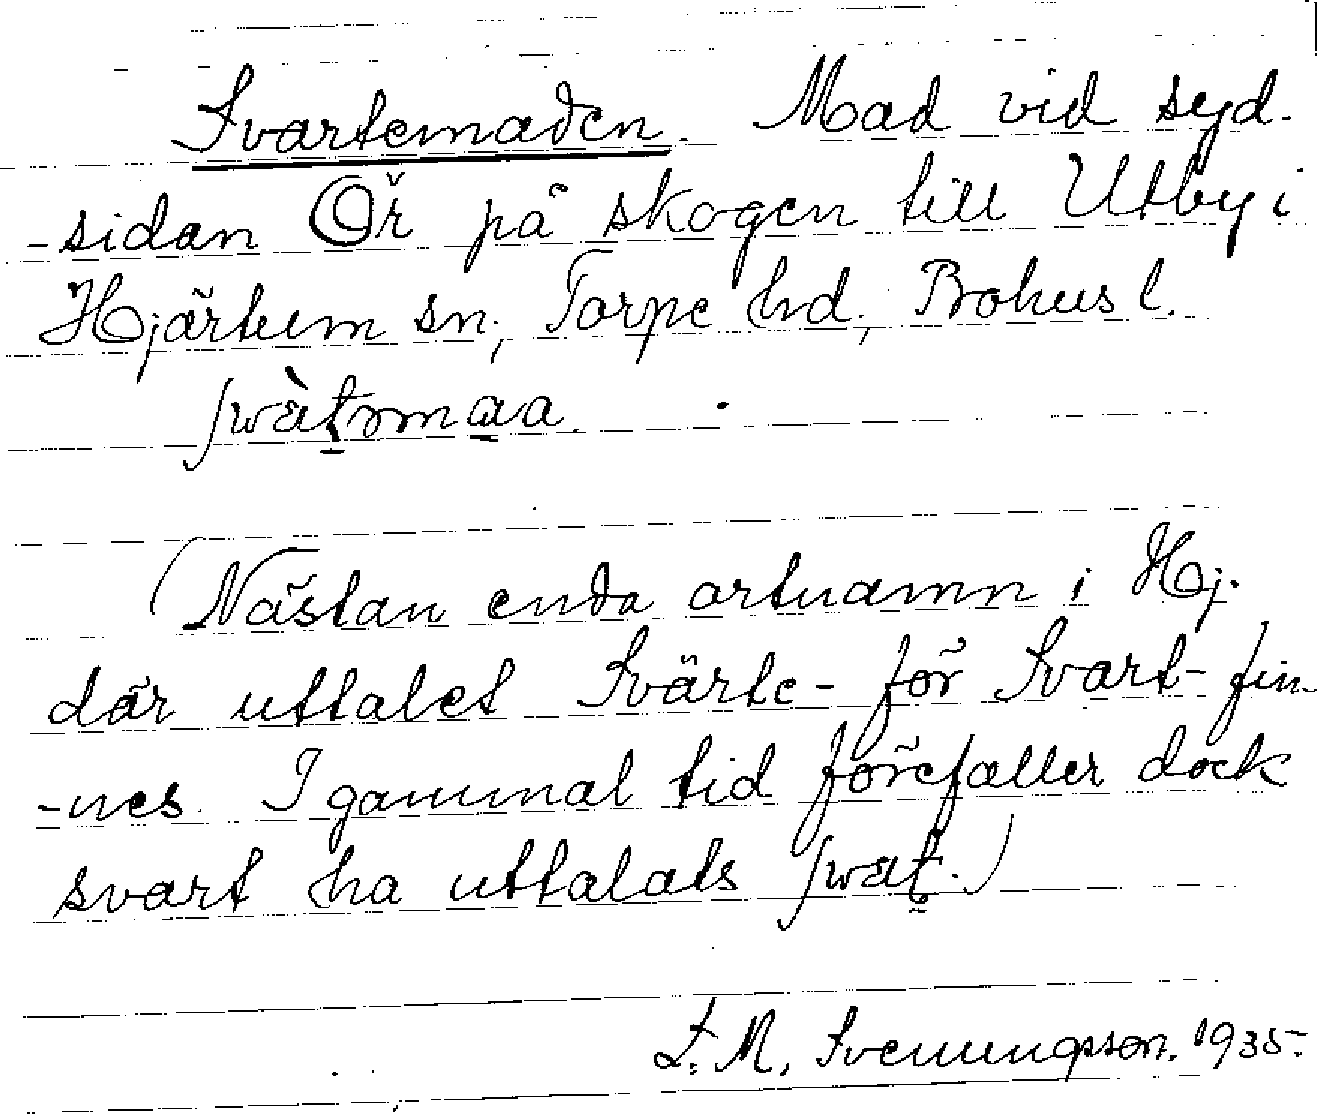 Svartemaden. Mad vid syd-
-sidan Ör på skogen till Utby i
Hjärtum sn, Torpe hd, Bohusl.
(Nästan enda ortnamn i Hj.
där uttalet Svärte- för Svart- fin-
-nes. I gammal tid förefaller dock
svart ha uttalats
S. M. Svenungsson. 1935.